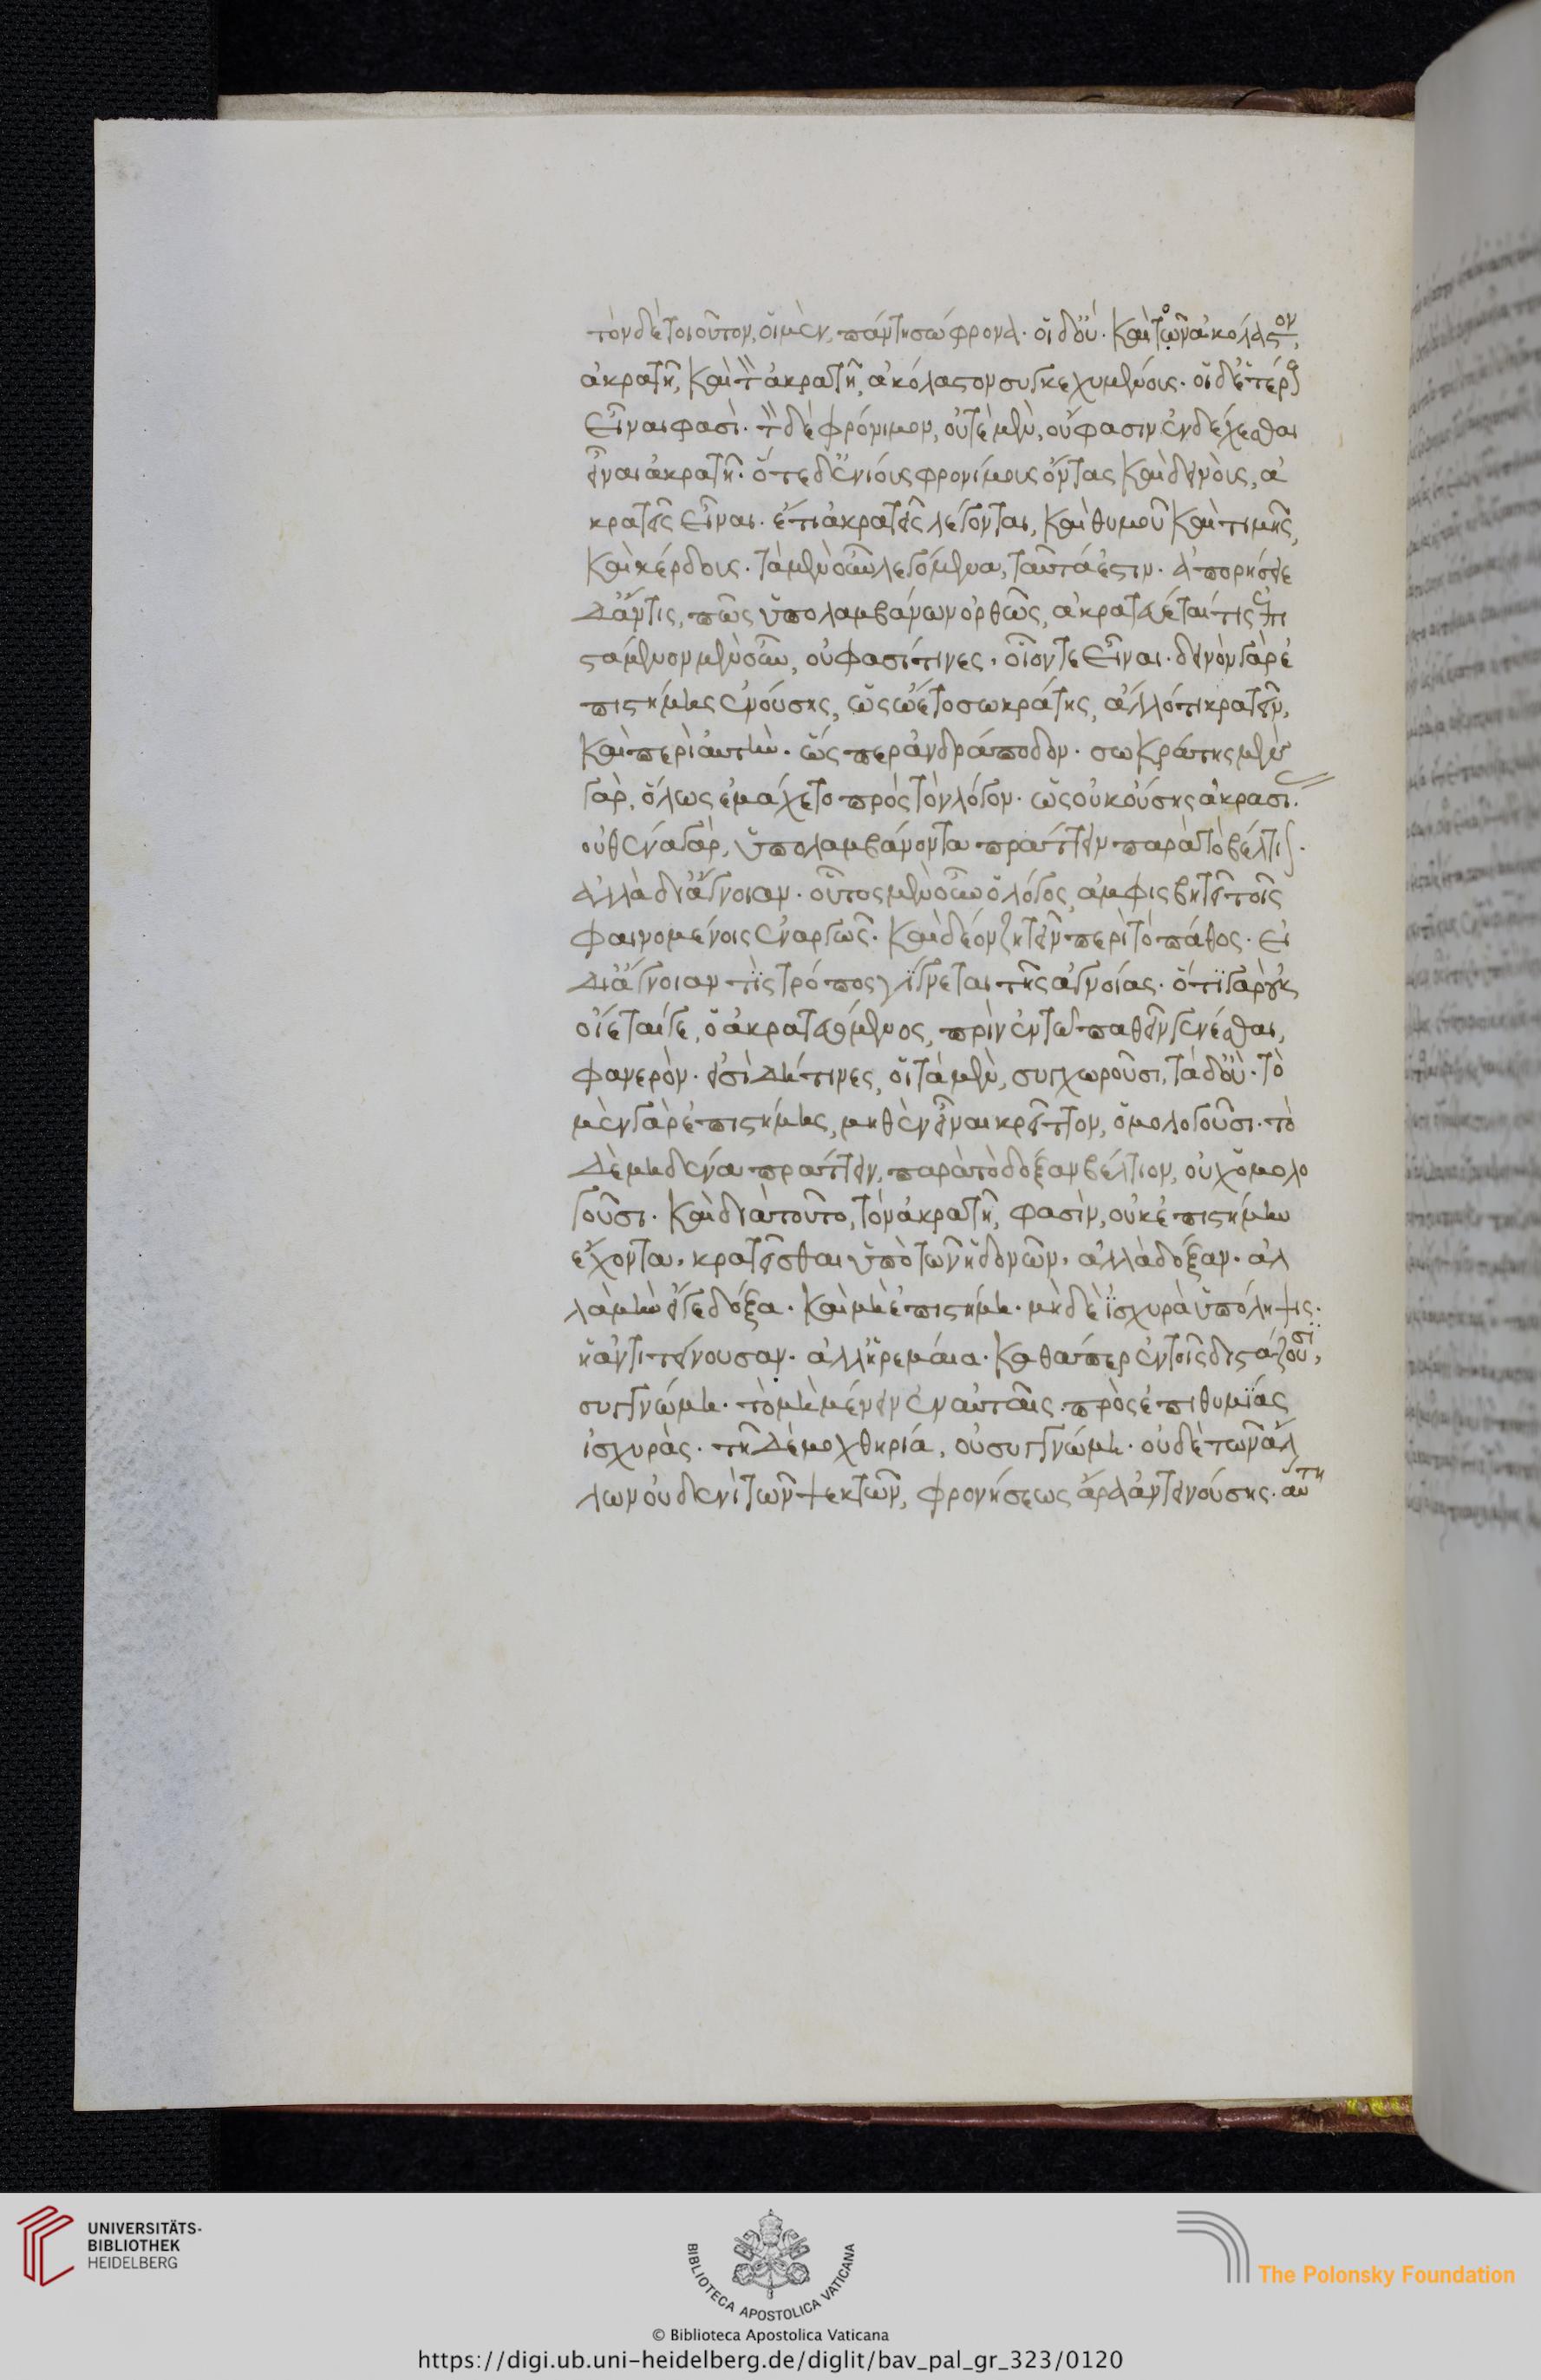 τὸν δὲ τοιοῦτον, οἱ μὲν, πάντη σώφρονα· οἱ δ' οὔ· καὶ τὸν ἀκόλαστον,
ἀκρατῆ, καὶ τὸν ἀκρατῆ, ἀκόλαστον συγκεχυμένοις· οἱ δ' ἑτέρους
εἶναι φασὶ· τὸν δὲ φρόνιμον, ὁτὲ μὲν, οὔ φασιν ἐνδέχεσθαι
εἶναι ἀκρατῆ· ὅτε δ' ἐνίοις φρονίμοις ὄντας καὶ δεινοὺς, ἀ
κρατεῖς εἶναι· ἔτι ἀκρατεῖς λέγονται, καὶ θυμοῦ καὶ τιμῆς,
καὶ κέρδοις· τὰ μὲν οὖν λεγόμενα, ταῦτά ἐστιν· ἀπορήσειε
δ' ἄν τις, πῶς ὑπολαμβάνων ὀρθῶς, ἀκρατεύεταί τις ἐπι
στάμενον μὲν οὖν, οὐ φασί τινες, οἷόν τε εἶναι· δεινὸν γὰρ ἐ
πιστήμης ἐνούσης, ὡς ᾤετο σωκράτης, ἄλλό τι κρατεῖν,
καὶ περὶ αὑτὴν· ὥσπερ ἀνδράποδον· σωκράτης μὲν
γὰρ, ὅλως ἐμάχετο πρὸς τὸν λόγον· ὡς οὐκ οὔσης ἀκρασι·
οὐθένα γὰρ, ὑπολαμβάνοντα πράττειν παρὰ τὸ βέλτισ·
ἀλλὰ δι' ἄγνοιαν· οὗτος μὲν οὖν ὁ λόγος ἀμφισβητεῖ τοῖς
φαινομένοις ἐναργῶς· καὶ δέον ζητεῖν περὶ τὸ πάθος· εἰ
δι' ἄγνοιαν τίς τρόπος γίγνεται τῆς ἀγνοίας· ὅτι γὰρ οὐκ
οἴεταί γε, ὁ ἀκρατευόμενος, πρὶν ἐν τῶ παθεῖν γενέσθαι,
φανερὸν· εἰσὶ δή τινες, οἳ τὰ μὲν, συγχωροῦσι, τὰ δ' οὔ· τὸ
μὲν γὰρ ἐπιστήμης, μηθὲν εἶναι κρεῖττον, ὁμολογοῦσι· τὸ
δὲ μηδένα πράττειν, παρὰ τὸ δόξαν βέλτιον, οὐχ ὁμολο
γοῦσι· καὶ διὰ τοῦτο, τὸν ἀκρατῆ, φασὶν, οὐκ ἐπιστήμην
ἔχοντα, κρατεῖσθαι ὑπὸ τῶν ἡδονῶν, ἀλλὰ δόξαν· ἀλ
λὰ μὴν εἴγε δόξα· καὶ μὴ ἐπιστήμη· μὴ δὲ ἰσχυρὰ ὑπόληψις·
ἡ ἀντιτείνουσαν· ἀλλ' ἠρεμαία· καθάπερ ἐν τοῖς διστάζουσι,
συγγνώμη· τὸ μὴ μένειν ἐν αὐταῖς πρὸς ἐπιθυμίας
ἰσχυρὰς· τῆ δὲ μοχθηρία, οὐ συγγνώμη· οὐδὲ τῶν ἄλ
λων οὐδενὶ τῶν ψεκτῶν, φρονήσεως ἄρα ἀντεινούσης· αὕτη
UNIVERSITÄTS-
BIBLIOTHEK
HEIDELBERG
BIBLIOTECA APOSTOLICA VATICANA
The Polonsky Foundation
© Biblioteca Apostolica Vaticana
https://digi.ub.uni-heidelberg.de/diglit/bav_pal_gr_323/0120